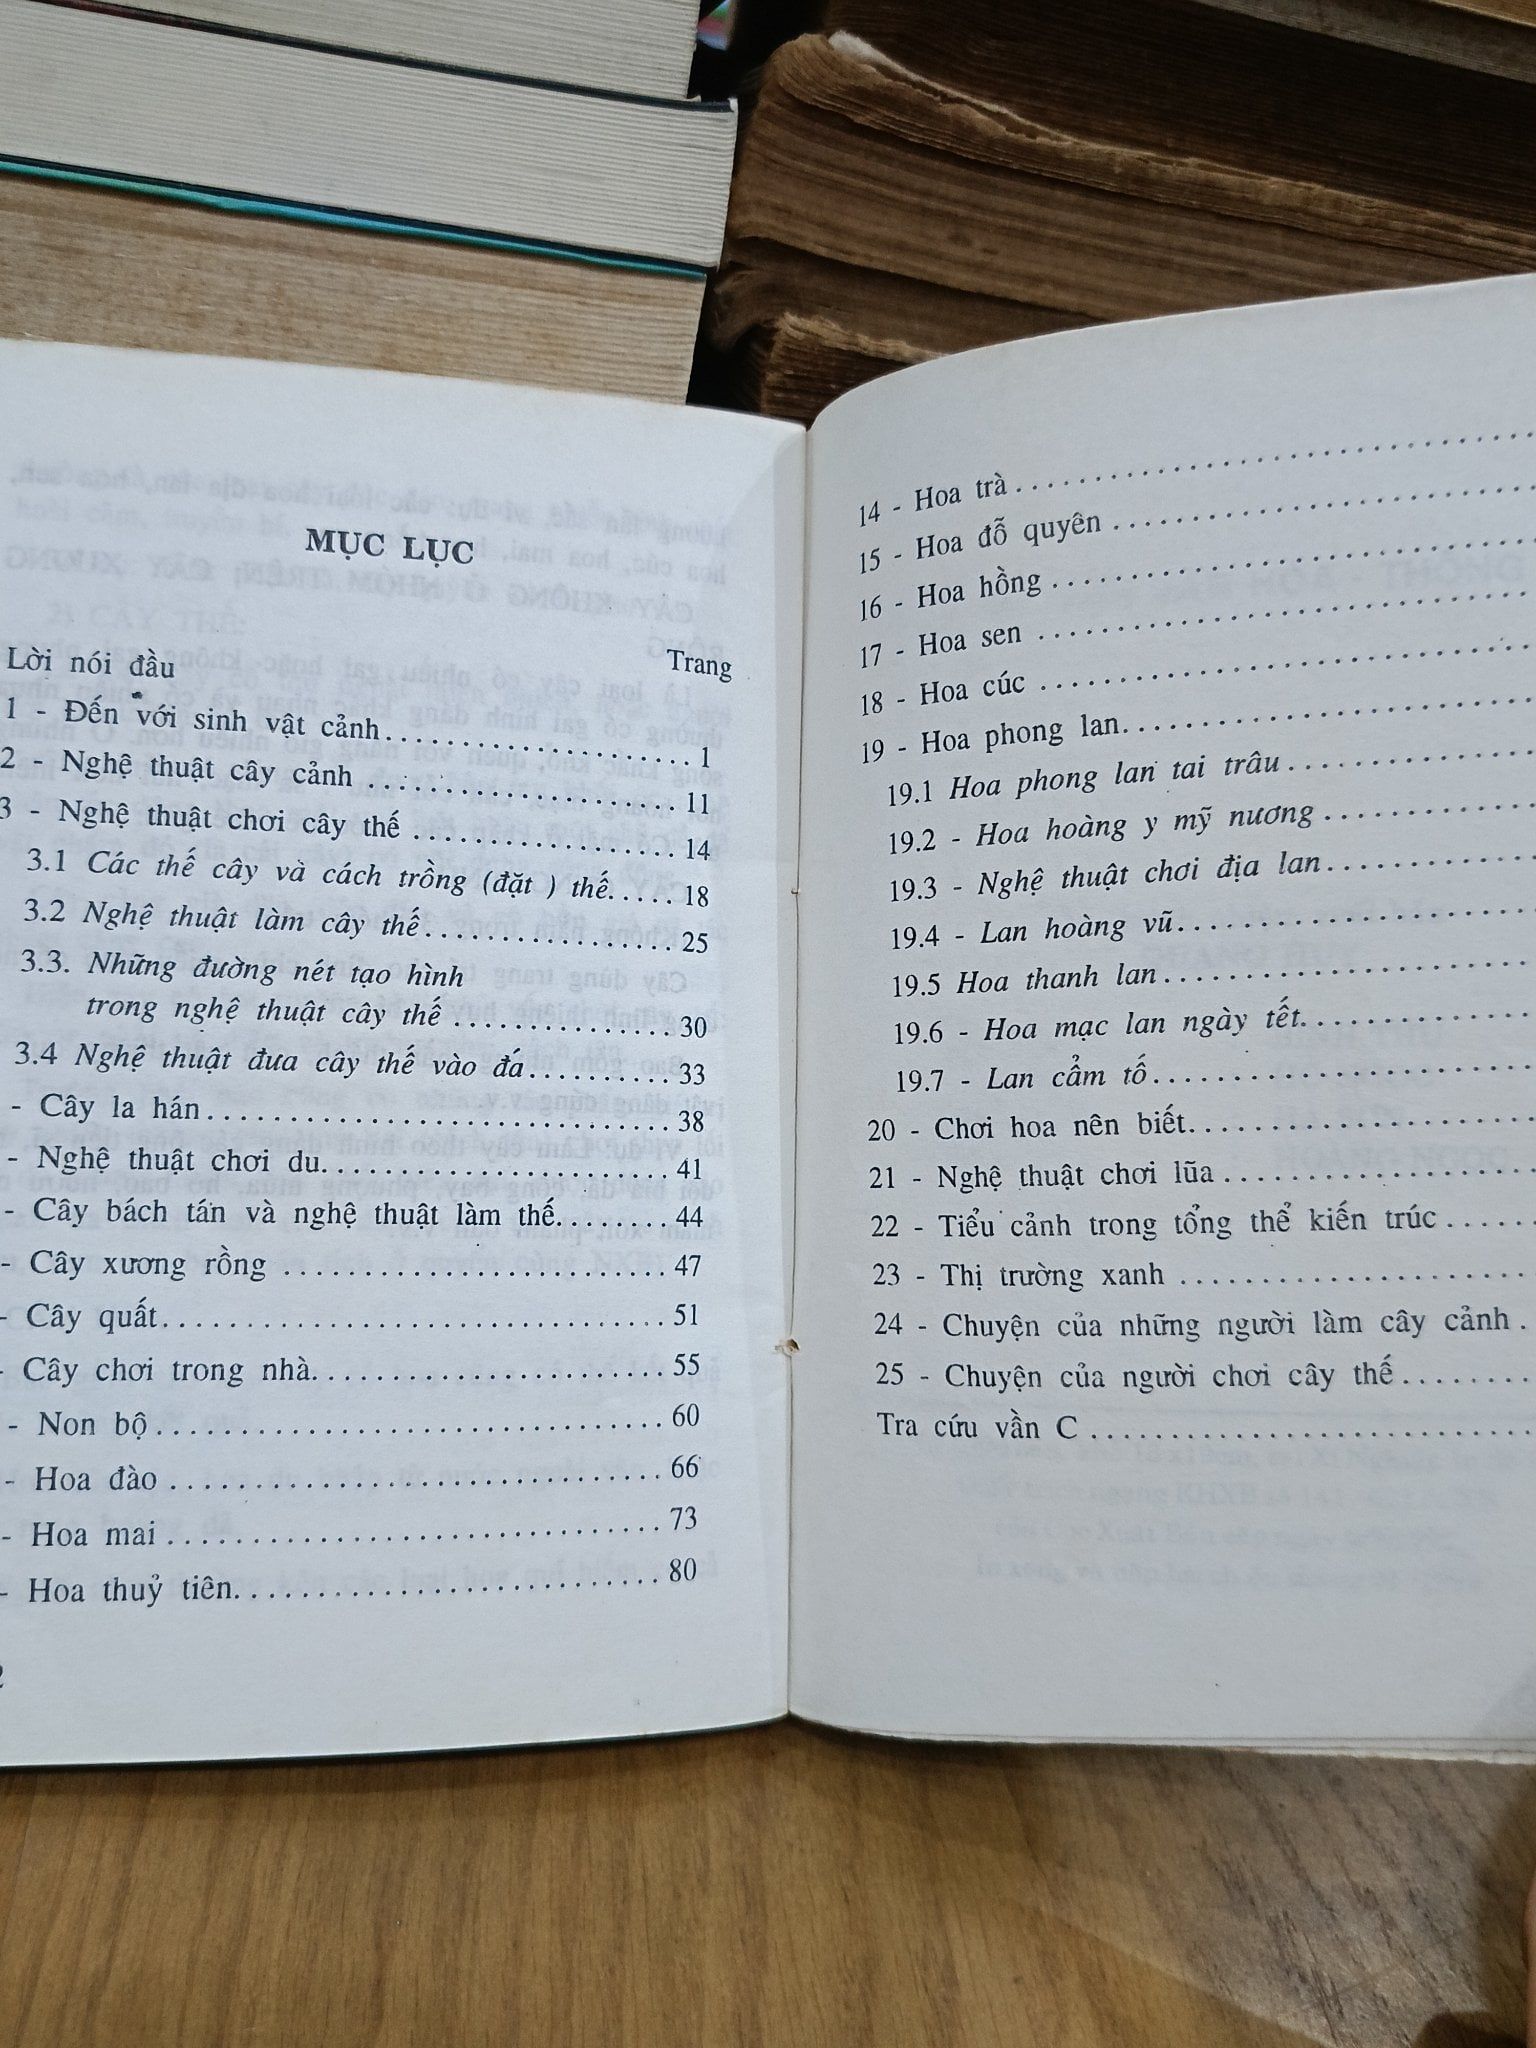 MỤC LỤC
Lời nói đầu Trang
1 - Đến với sinh vật cảnh.................... 1
2 - Nghệ thuật cây cảnh .................... 11
3 - Nghệ thuật chơi cây thế .................. 14
3.1 Các thế cây và cách trồng (đặt ) thế..... 18
3.2 Nghệ thuật làm cây thế.................. 25
3.3. Những đường nét tạo hình
trong nghệ thuật cây thế ............... 30
3.4 Nghệ thuật đưa cây thế vào đá.......... 33
- Cây la hán............................... 38
- Nghệ thuật chơi du....................... 41
- Cây bách tán và nghệ thuật làm thế....... 44
- Cây xương rồng .......................... 47
- Cây quất................................. 51
- Cây chơi trong nhà....................... 55
- Non bộ................................... 60
- Hoa đào ................................. 66
- Hoa mai ................................. 73
- Hoa thuỷ tiên............................ 80
2
14 - Hoa trà ..............................
15 - Hoa đỗ quyên .........................
16 - Hoa hồng .............................
17 - Hoa sen ..............................
18 - Hoa cúc ..............................
19 - Hoa phong lan.........................
19.1 Hoa phong lan tai trâu ..............
19.2 - Hoa hoàng y mỹ nương .............
19.3 - Nghệ thuật chơi địa lan............
19.4 - Lan hoàng vũ.......................
19.5 Hoa thanh lan........................
19.6 - Hoa mạc lan ngày tết...............
19.7 - Lan cẩm tố.........................
20 - Chơi hoa nên biết.....................
21 - Nghệ thuật chơi lũa ..................
22 - Tiểu cảnh trong tổng thể kiến trúc .....
23 - Thị trường xanh ......................
24 - Chuyện của những người làm cây cảnh .
25 - Chuyện của người chơi cây thế ........
Tra cứu vần C .............................